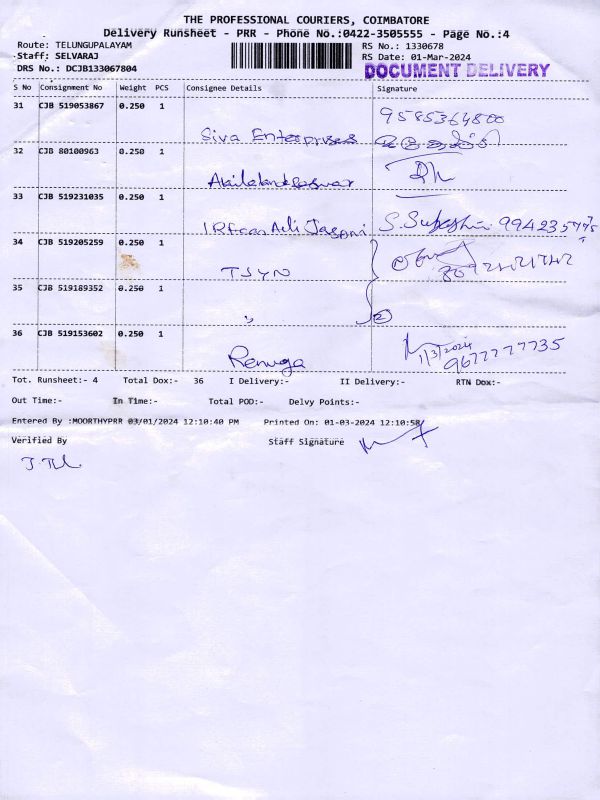 THE PROFESSIONAL COURIERS, COIMBATORE
Delivery Runsheet - PRR - Phone No.:0422-3505555 - Page No.:4
Route: TELUNGUPALAYAM RS No.: 1330678
Staff: SELVARAJ RS Date: 01-Mar-2024
DRS No.: DCJB133067804 DOCUMENT DELIVERY
S No Consignment No Weight PCS Consignee Details Signature
31 CJB 519053867 0.250 1 Siva Enterprises 9585364800
32 CJB 80100963 0.250 1
33 CJB 519231035 0.250 1 994235
34 CJB 519205259 0.250 1 TSYN
35 CJB 519189352 0.250 1 " 2
36 CJB 519153602 0.250 1 Renuga 1/3/2024
9677777735
Tot. Runsheet:- 4 Total Dox:- 36 I Delivery:- II Delivery:- RTN Dox:-
Out Time:- In Time:- Total POD:- Delvy Points:-
Entered By :MOORTHYPRR 03/01/2024 12:10:40 PM Printed On: 01-03-2024 12:10:58
Verified By Staff Signature